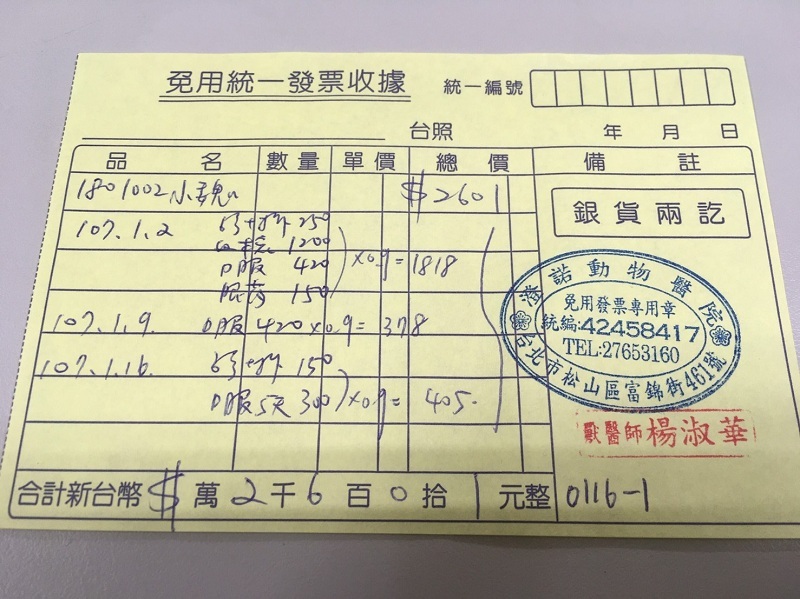 免用統一發票收據
統一編號
台照 年 月 日
品 名 數量 單價 總 價 備 註
1801002小魏 $2601
銀貨兩訖
107.1.2 250
1200
口服 420 ×0.9=1818
眼药 150
107.1.9. 口服 420×0.9=378
107.1.16. 150
口服5天 300 ×0.9= 405.
浩諾動物醫院
免用發票專用章
統編:42458417
TEL:27653160
台北市松山區富錦街461號
獸醫師 楊淑華
合計新台幣 $ 萬 2 千 6 百 0 拾 1 元整 0116-1